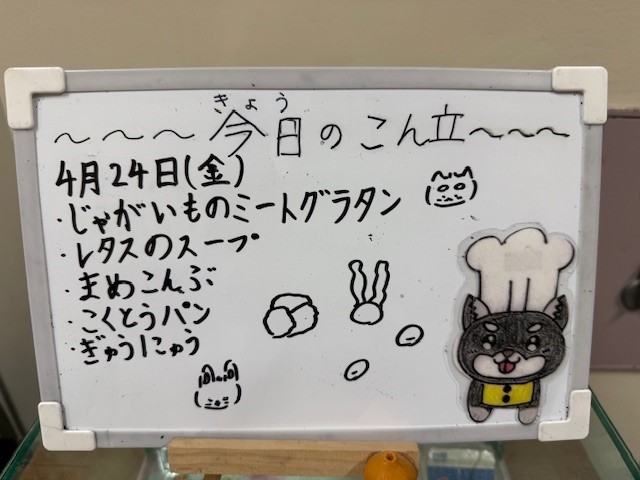 きょう
～～～今日のこん立～～～
4月24日(金)
・じゃがいものミートグラタン
・レタスのスープ
・まめこんぶ
・こくとうパン
・ぎゅうにゅう